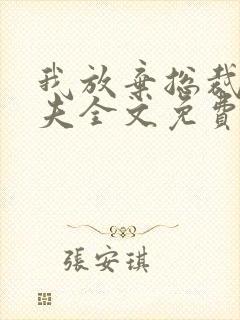 我放棄總裁
夫全文免費
張安琪